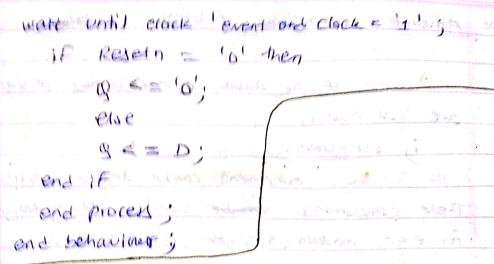 wait until clock 'event and clock = '1' ;
if Resetn = '0' then
Q <= '0';
else
Q <= D;
end if
end process ;
end behaviour ;